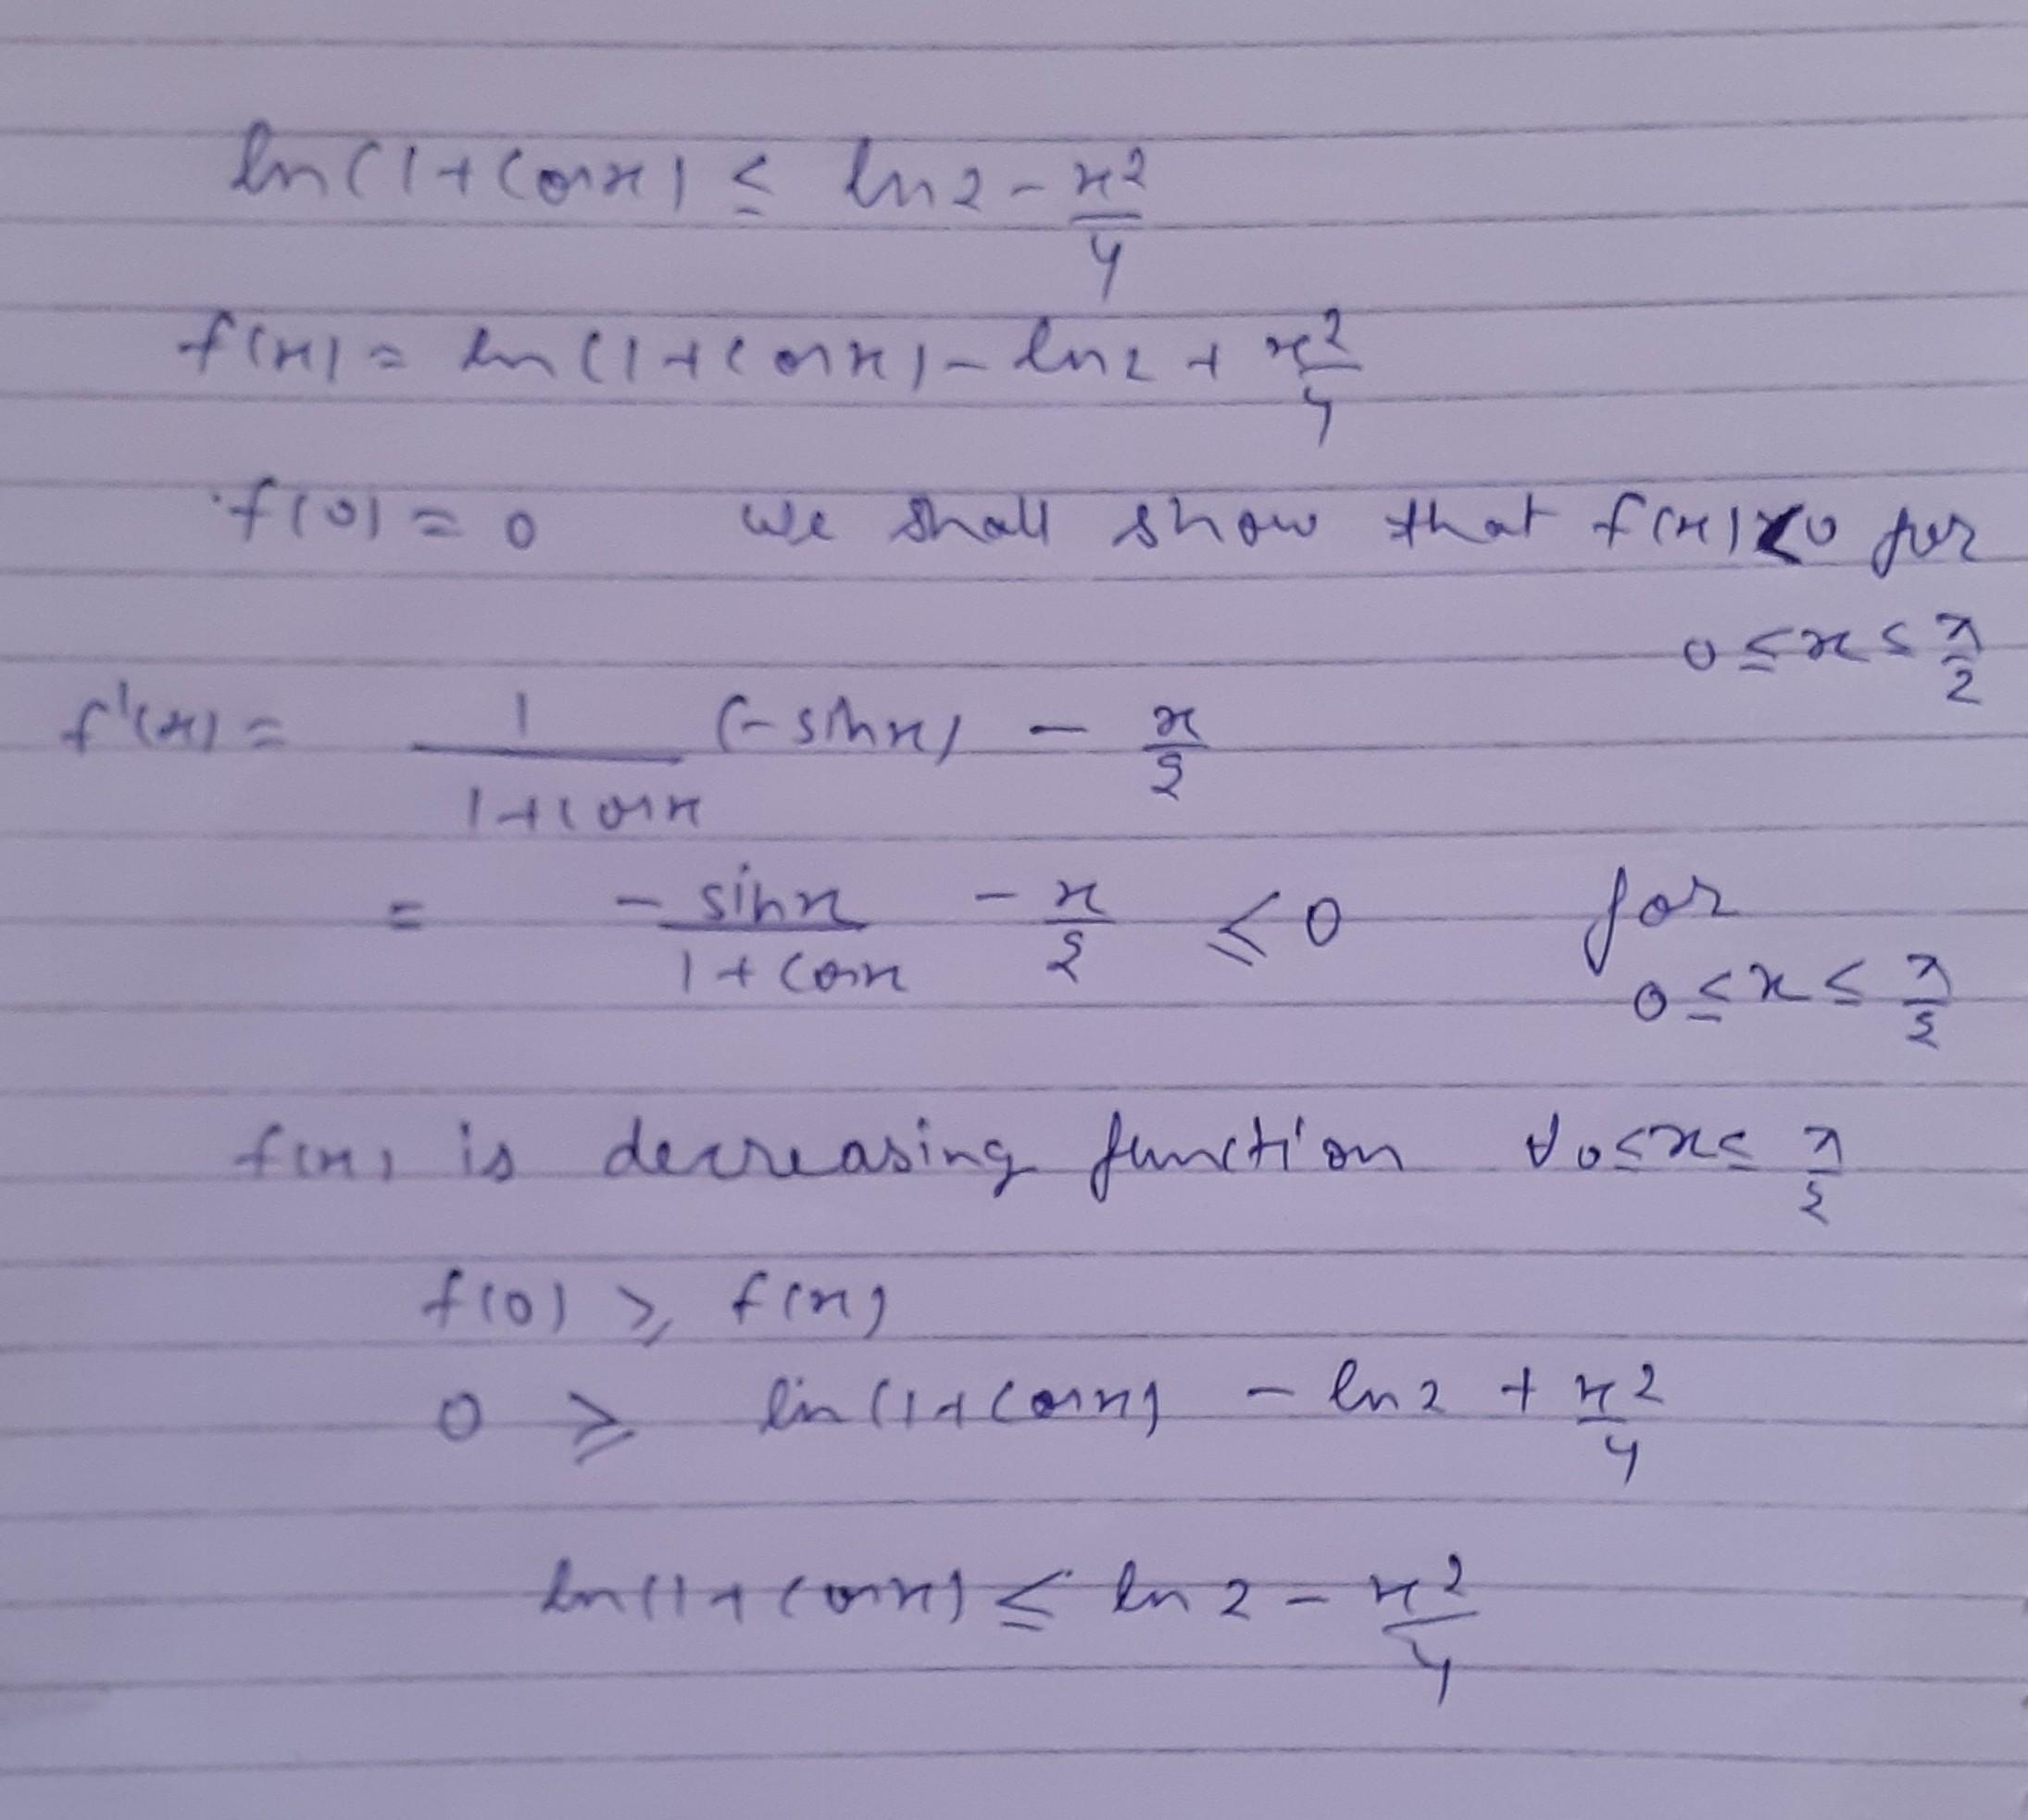 ln(1+cosx) ≤ ln2 - x²/4
f(x) = ln(1+cosx) - ln2 + x²/4
f(0) = 0 we shall show that f(x)<0 for
0≤x≤π/2
f'(x) = 1/(1+cosx) (-sinx) - x/2
= -sinx/(1+cosx) - x/2 ≤ 0 for
0≤x≤π/2
f(x) is decreasing function ∀ 0≤x≤π/2
f(0) ≥ f(x)
0 ≥ ln(1+cosx) - ln2 + x²/4
ln(1+cosx) ≤ ln2 - x²/4